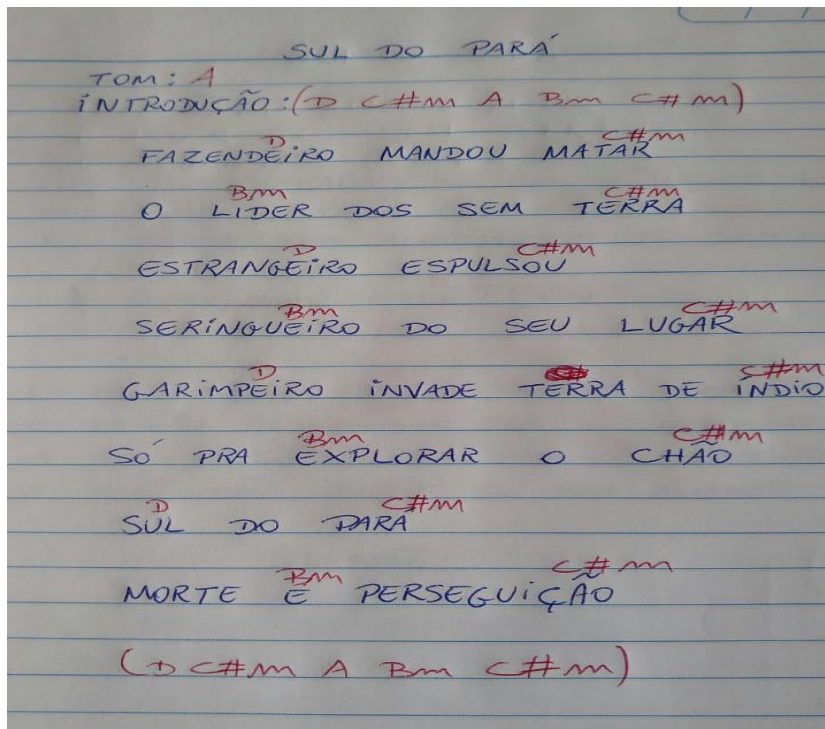 SUL DO PARÁ
TOM: A
INTRODUÇÃO: (D C#m A Bm C#m)
D C#m
FAZENDEIRO MANDOU MATAR
Bm C#m
O LIDER DOS SEM TERRA
D C#m
ESTRANGEIRO ESPULSOU
Bm C#m
SERINGUEIRO DO SEU LUGAR
D C#m
GARIMPEIRO INVADE TERRA DE ÍNDIO
Bm C#m
SÓ PRA EXPLORAR O CHÃO
D C#m
SUL DO PARÁ
Bm C#m
MORTE E PERSEGUIÇÃO
(D C#m A Bm C#m)